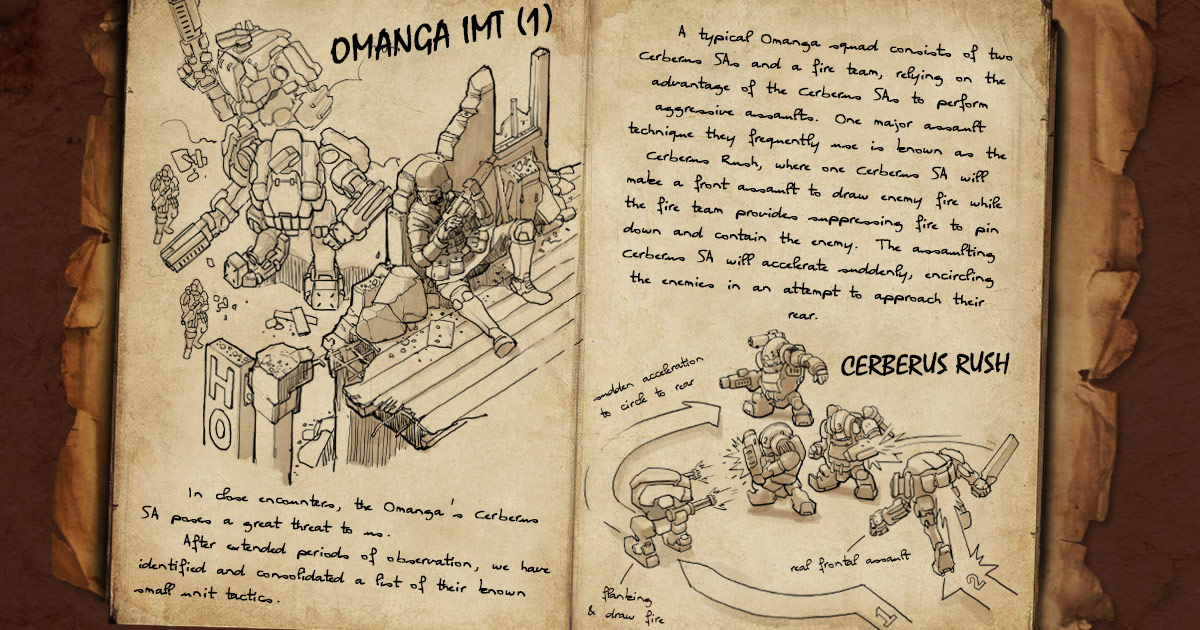 OMANGA IMT (1)
HO
In close encounters, the Omanga's Cerberus
SA poses a great threat to us.
After extended periods of observation, we have
identified and consolidated a list of their known
small unit tactics.
A typical Omanga squad consists of two
Cerberus SAs and a fire team, relying on the
advantage of the Cerberus SAs to perform
aggressive assaults. One major assault
technique they frequently use is known as the
Cerberus Rush, where one Cerberus SA will
make a front assault to draw enemy fire while
the fire team provides suppressing fire to pin
down and contain the enemy. The assaulting
Cerberus SA will accelerate suddenly, encircling
the enemies in an attempt to approach their
rear.
CERBERUS RUSH
sudden acceleration
to circle to rear
real frontal assault
flanking
& draw fire
1
2